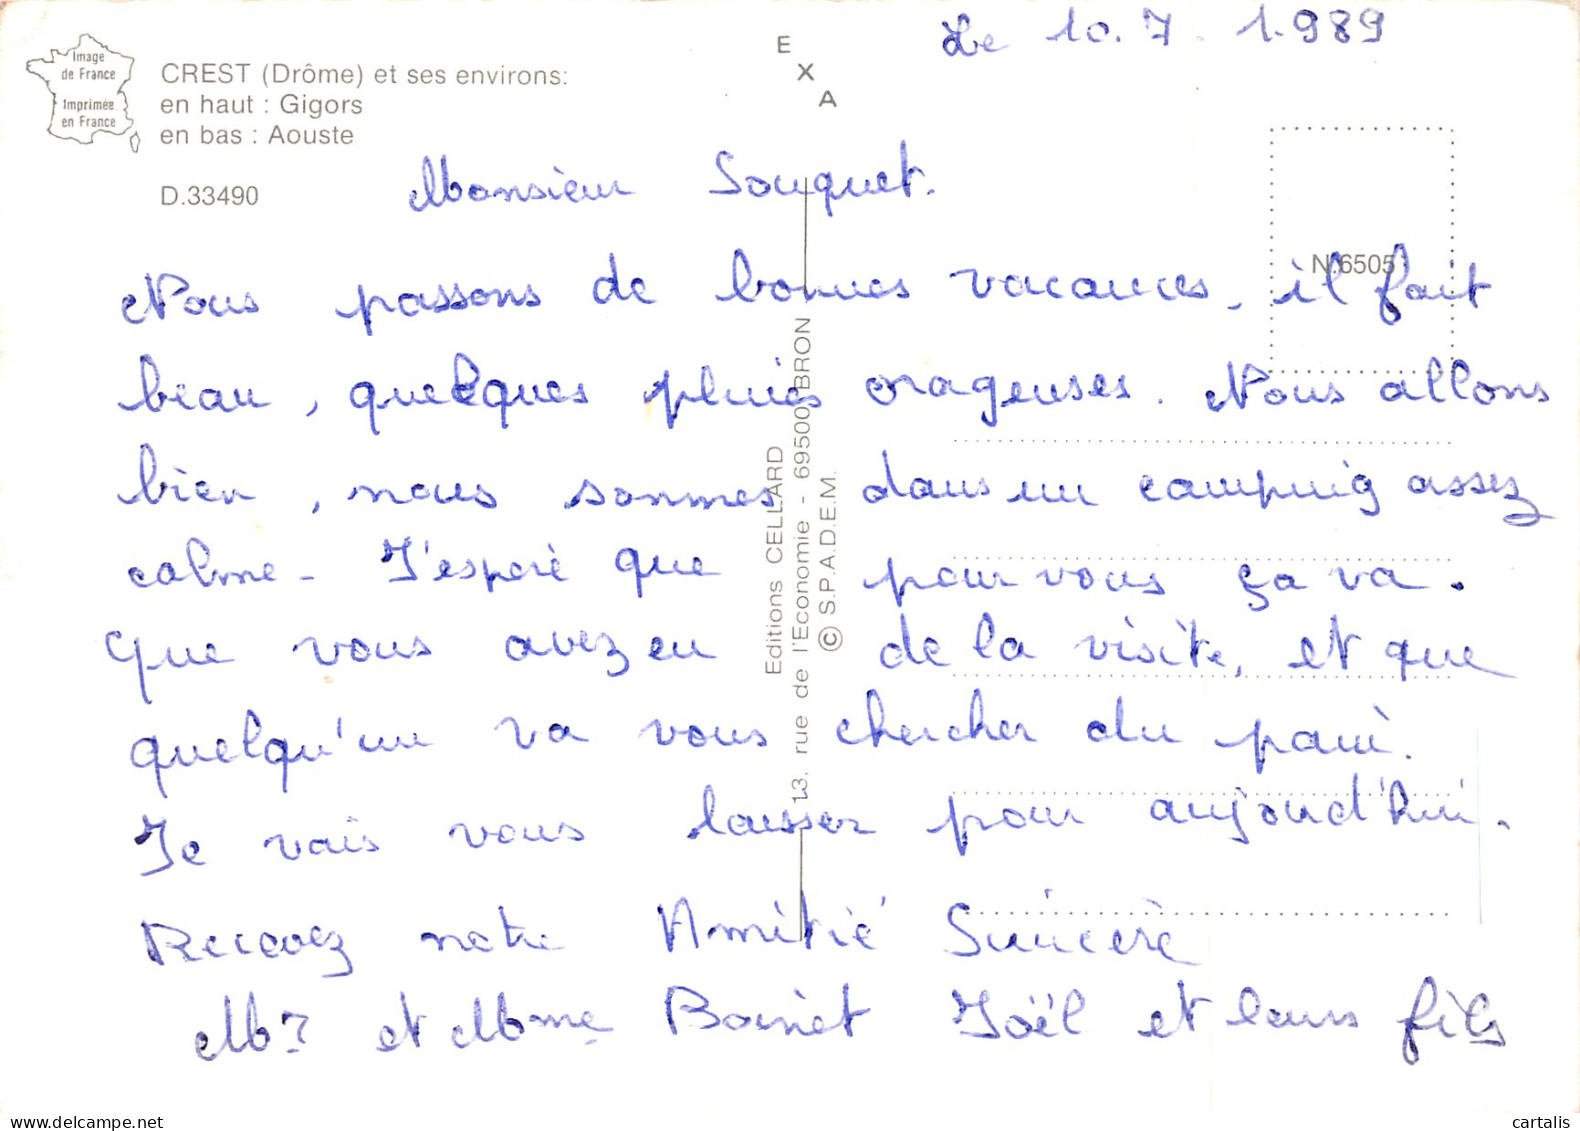 Le 10.7.1.989
Image
de France
Imprimée
en France
CREST (Drôme) et ses environs:
en haut : Gigors
en bas : Aouste
D.33490
E
X
A
Monsieur Souquet.
N.6505
Nous passons de bonnes vacances, il fait
beau, quelques pluies orageuses. Nous allons
bien, nous sommes dans un camping assez
calme - J'espère que pour vous ça va.
Que vous avez eu de la visite, et que
quelqu'un va vous chercher du pain.
Je vais vous laisser pour aujourd'hui.
Recevez notre Amitié Sincère
Mr et Mme Boinet Joël et leurs fils
Editions CELLARD
13, rue de l'Economie - 69500 BRON
© S.P.A.D.E.M.
delcampe.net
cartalis